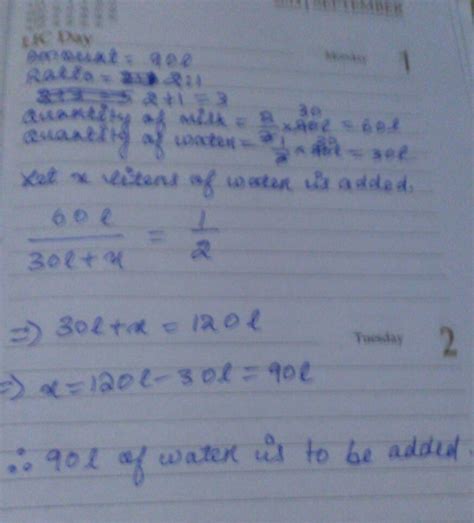 SEPTEMBER
LIC Day
Monday 1
amount = 90l
Ratio = 2:1
2+1 = 3
Quantity of milk = 2/3 × 90l = 60l
30
Quantity of water = 1/3 × 90l = 30l
Let x liters of water is added.
60l / 30l+x = 1/2
⇒ 30l+x = 120l
Tuesday 2
⇒ x = 120l - 30l = 90l
∴ 90l of water is to be added.